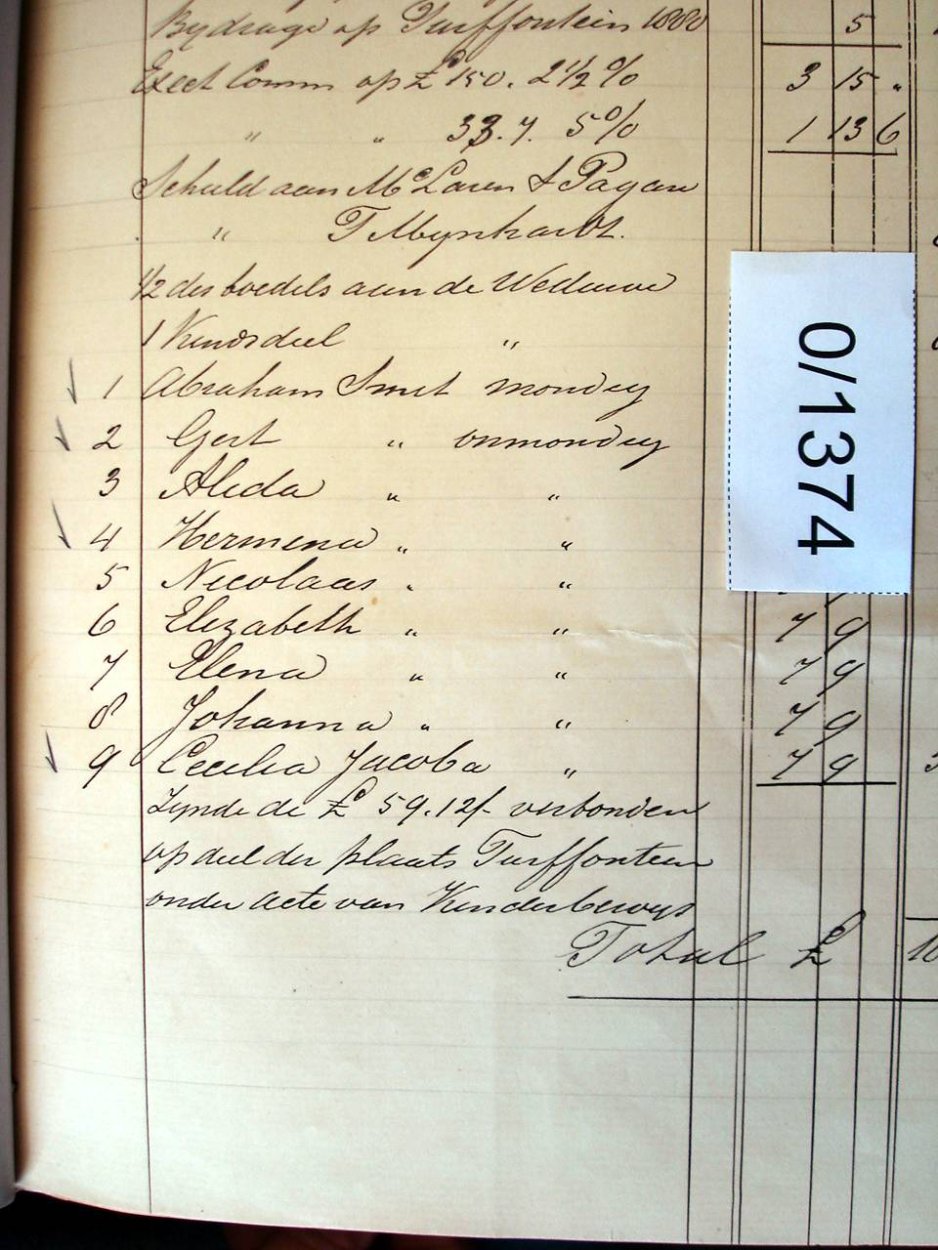 Bydrage op Turffontein 1880 5
Exect Comm op £150. 2½% 3 15 "
" " 33.7. 5% 1 13 6
Schuld aan McLaren & Pagan
" T Mynhardt.
½ des boedels aan de Weduwe
1 Kindsdeel "
1 Abraham Smit mondig
2 Gert " onmondig
3 Aleda " "
4 Hermena " "
5 Nicolaas " "
6 Elizabeth " " 7 9
7 Elena " " 7 9
8 Johanna " " 7 9
9 Cecilia Jacoba " 7 9
Zynde de £59.12/- verbonden
op deel der plaats Turffontein
onder acte van Kinderbewys
Total £ 10
0/1374